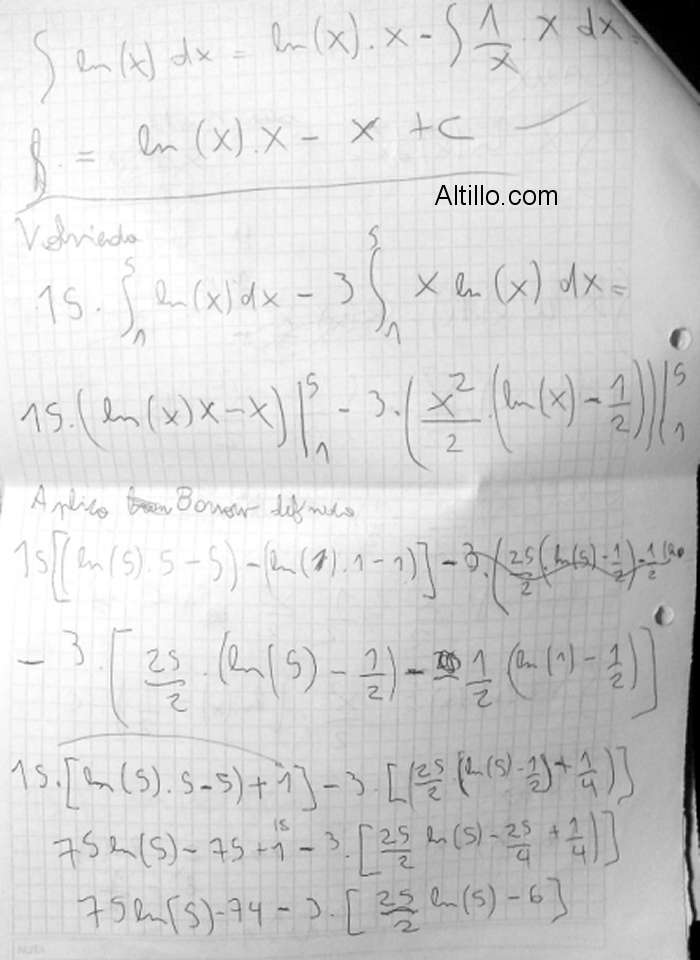 ∫ ln(x) dx = ln(x) . x - ∫ 1/x . x dx =
= ln(x) . x - x + C
Altillo.com
Volviendo
15 . ∫₁⁵ ln(x) dx - 3 ∫₁⁵ x ln(x) dx =
15 . (ln(x) x - x) |₁⁵ - 3 . (x²/2 . (ln(x) - 1/2)) |₁⁵
Aplico Barrow definido
15 [(ln(5) . 5 - 5) - (ln(1) . 1 - 1)] - 3 . (25/2 (ln(5) - 1/2) - 1/2
- 3 . [25/2 . (ln(5) - 1/2) - 1/2 (ln(1) - 1/2)]
15 . [ln(5) . 5 - 5) + 1] - 3 . [(25/2 (ln(5) - 1/2) + 1/4)]
15
75 ln(5) - 75 + 1 - 3 . [25/2 ln(5) - 25/4 + 1/4)]
75 ln(5) - 74 - 3 . [25/2 ln(5) - 6]